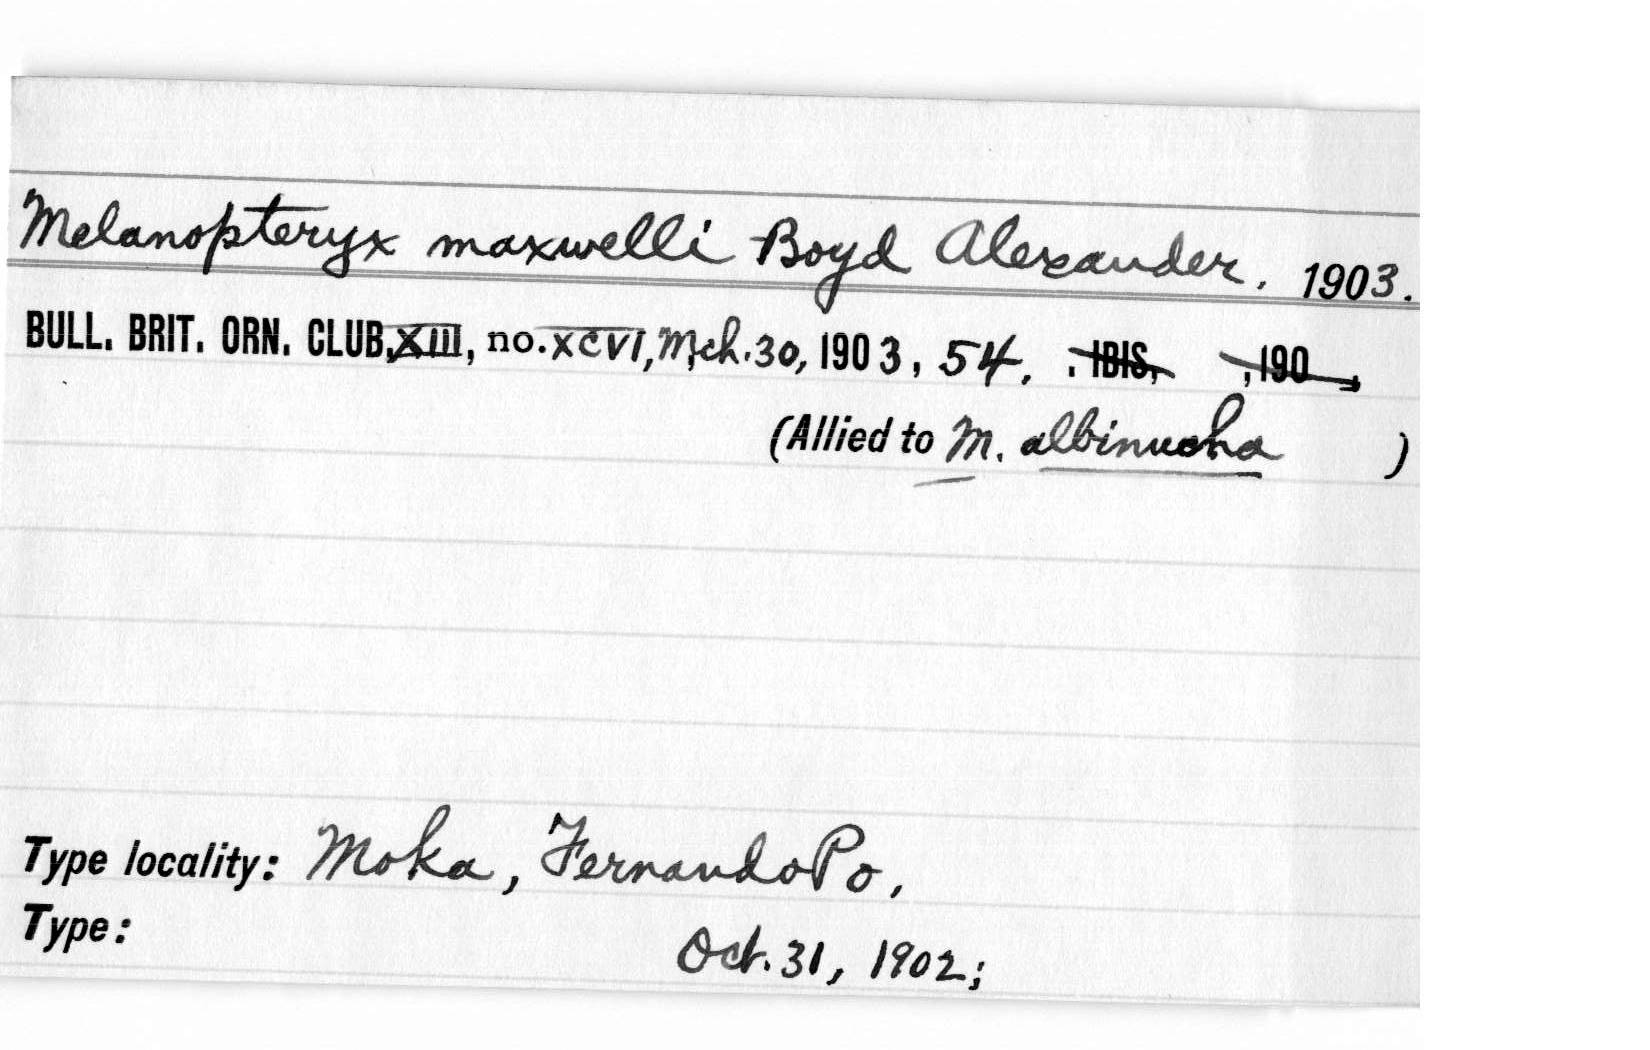 Melanopteryx maxwelli Boyd Alexander. 1903.
BULL. BRIT. ORN. CLUB, XIII, no. XCVI, Mch. 30, 1903, 54. . IBIS, , 190 .
(Allied to M. albinucha )
Type locality: Moka, Fernando Po,
Type: Oct. 31, 1902;